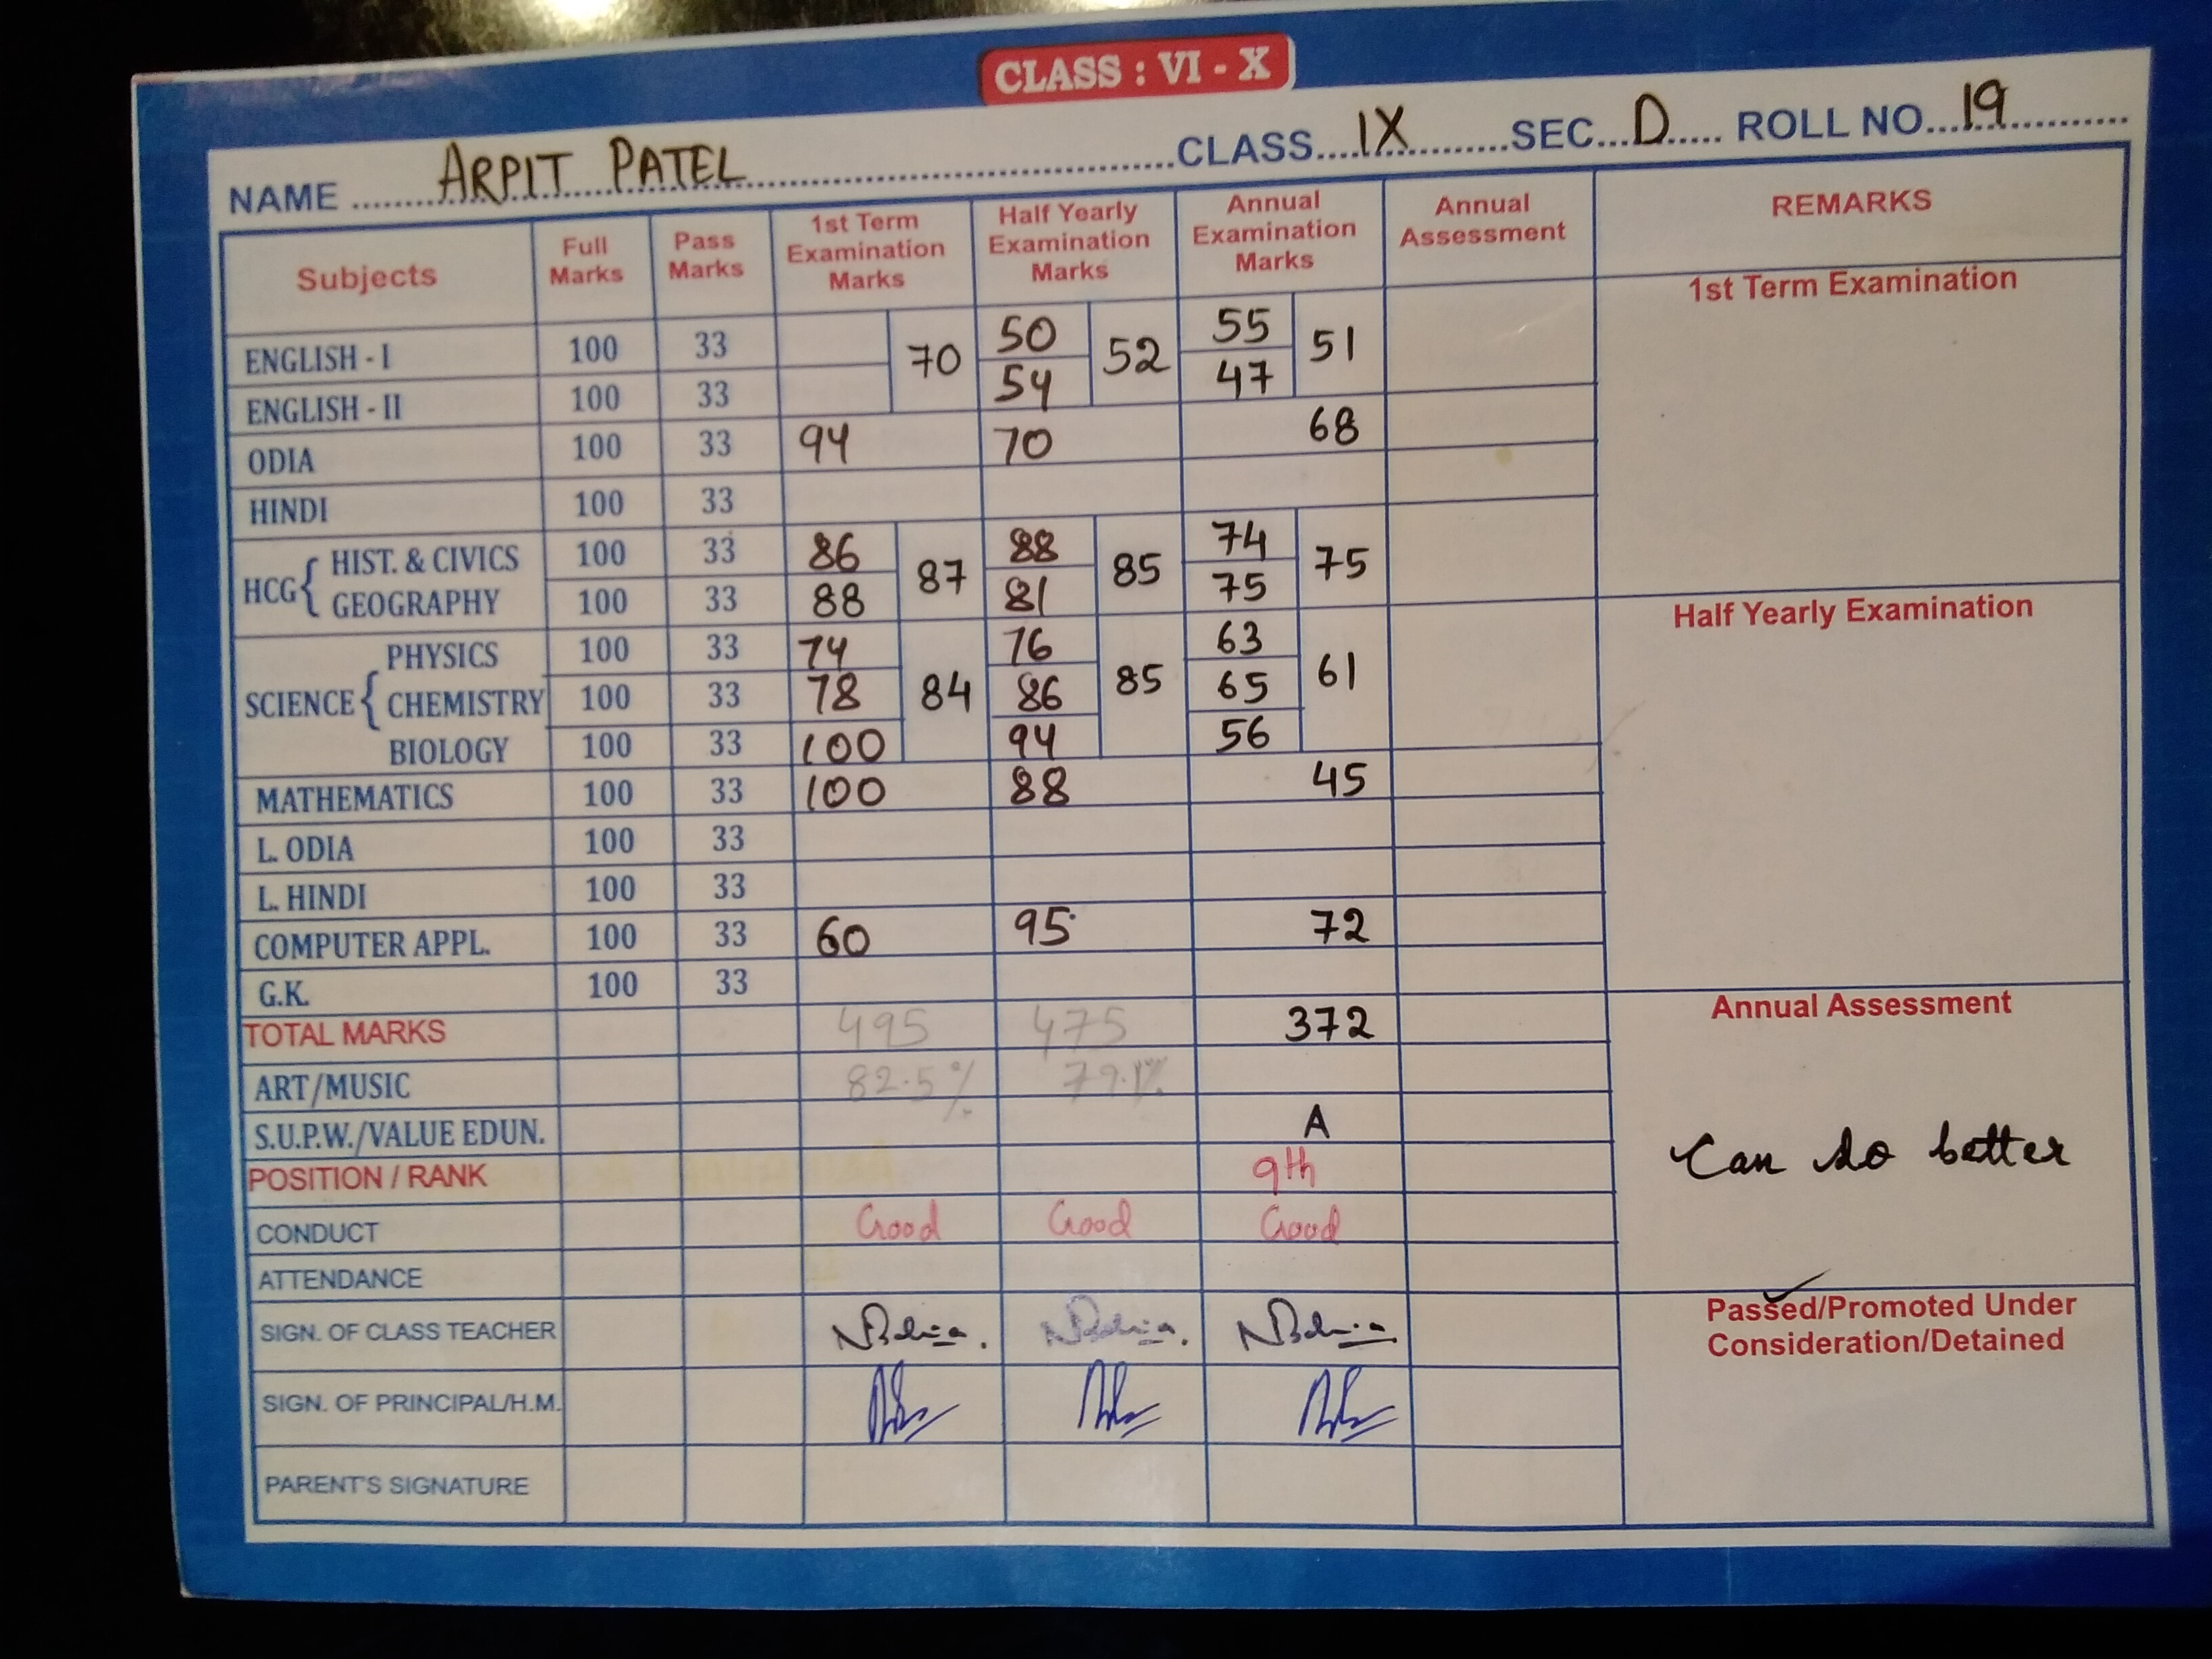 CLASS : VI - X
NAME ARPIT PATEL CLASS IX SEC D ROLL NO 19
Subjects Full Marks Pass Marks 1st Term Examination Marks Half Yearly Examination Marks Annual Examination Marks Annual Assessment REMARKS
1st Term Examination
ENGLISH - I 100 33 70 50 52 55 51
ENGLISH - II 100 33 54 47
ODIA 100 33 94 70 68
HINDI 100 33
HCG { HIST. & CIVICS 100 33 86 87 88 85 74 75
GEOGRAPHY 100 33 88 81 75
Half Yearly Examination
SCIENCE { PHYSICS 100 33 74 84 76 85 63 61
CHEMISTRY 100 33 78 86 65
BIOLOGY 100 33 100 94 56
MATHEMATICS 100 33 100 88 45
L. ODIA 100 33
L. HINDI 100 33
COMPUTER APPL. 100 33 60 95 72
G.K. 100 33
Annual Assessment
TOTAL MARKS 495 475 372
ART/MUSIC 82.5% 79.1%
S.U.P.W./VALUE EDUN. A
Can do better
POSITION / RANK 9th
CONDUCT Good Good Good
ATTENDANCE
Passed/Promoted Under
Consideration/Detained
SIGN. OF CLASS TEACHER
SIGN. OF PRINCIPAL/H.M.
PARENT'S SIGNATURE